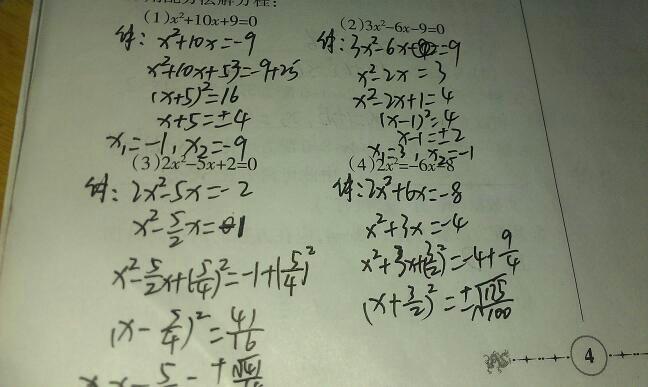 用配方法解方程:
(1)x²+10x+9=0
解: x²+10x=-9
x²+10x+5²=-9+25
(x+5)²=16
x+5=±4
x₁=-1, x₂=-9
(2)3x²-6x-9=0
解: 3x²-6x=9
x²-2x=3
x²-2x+1=4
(x-1)²=4
x-1=±2
x₁=3, x₂=-1
(3)2x²-5x+2=0
解: 2x²-5x=-2
x²-5/2x=-1
x²-5/2x+(5/4)²=-1+(5/4)²
(x-5/4)²=41/16
(4)2x²=-6x-8
解: 2x²+6x=-8
x²+3x=-4
x²+3x+(3/2)²=-4+9/4
(x+3/2)²=±√175/√100
4